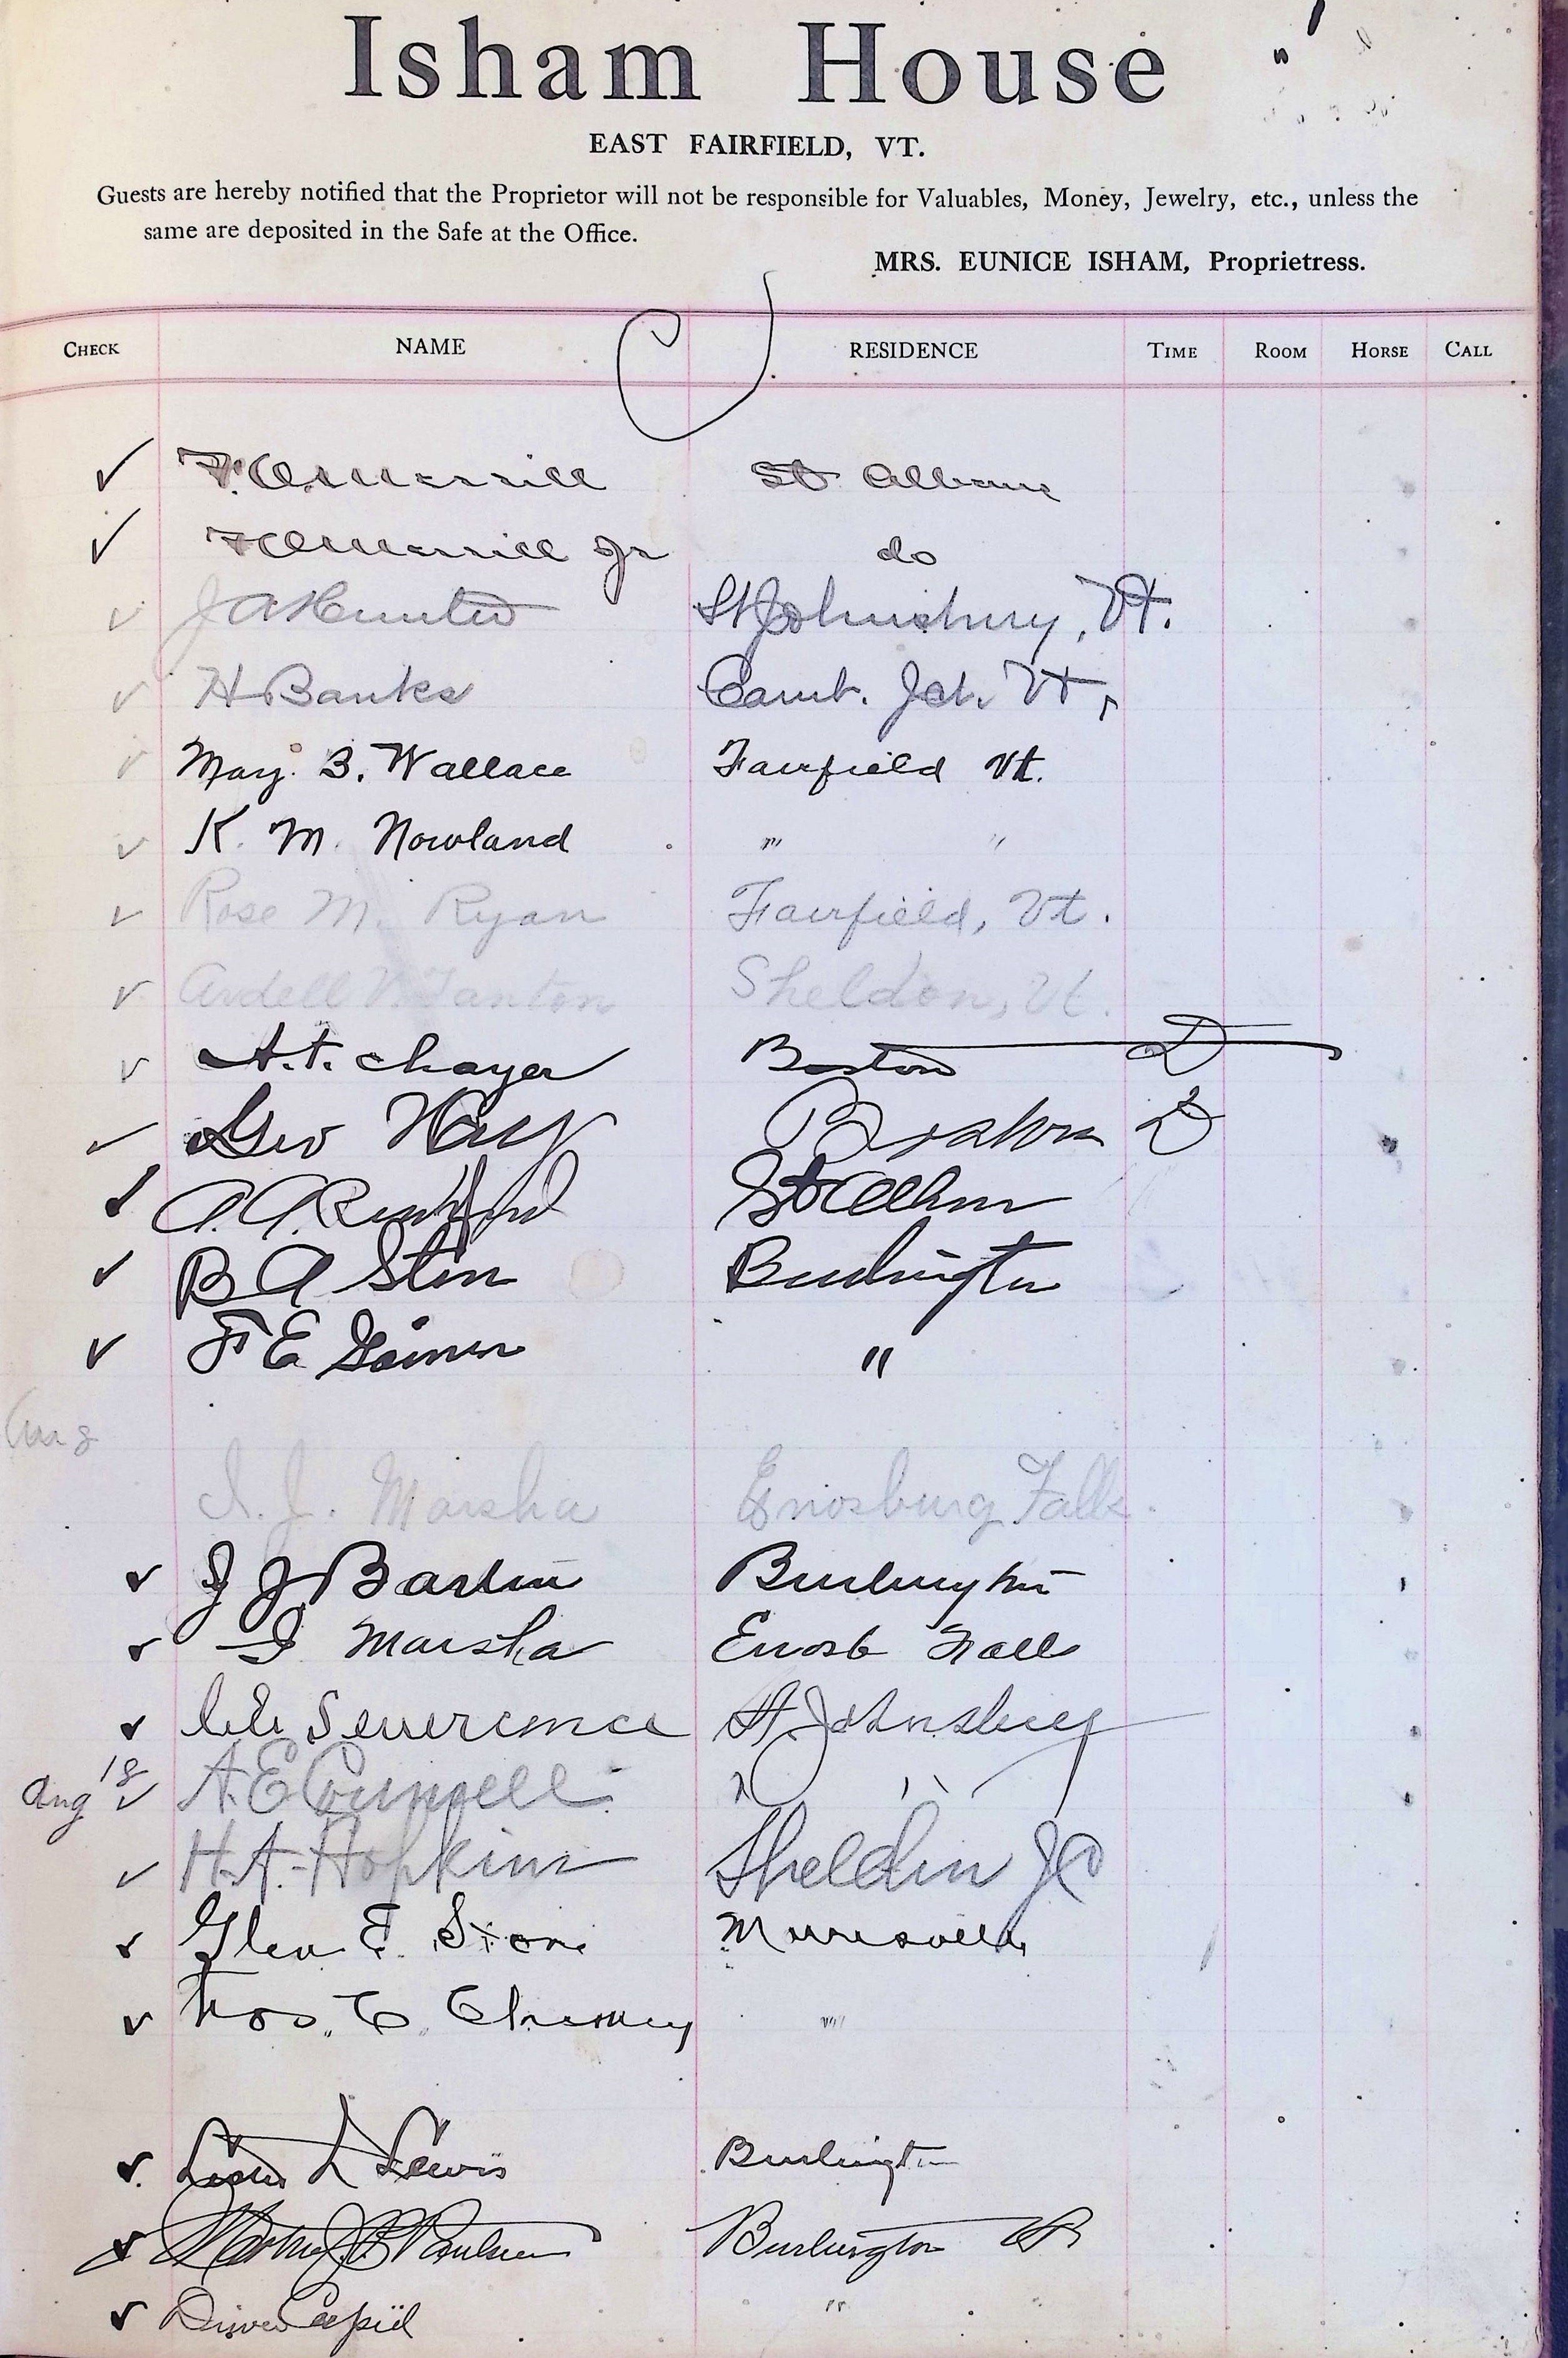 Isham House
EAST FAIRFIELD, VT.
Guests are hereby notified that the Proprietor will not be responsible for Valuables, Money, Jewelry, etc., unless the
same are deposited in the Safe at the Office.
MRS. EUNICE ISHAM, Proprietress.
CHECK NAME RESIDENCE TIME ROOM HORSE CALL
✓ F.O. Merrill St Albans
✓ F O Merrill Jr do
✓ J A Hunter St Johnsbury, Vt.
✓ H Banks Camb. Jct. Vt,
✓ May B. Wallace Fairfield Vt.
✓ K. M. Nowland " "
✓ Rose M. Ryan Fairfield, Vt.
✓ Ardell Sheldon, Vt.
✓ A. T. Chayer Boston D
✓ Geo D
✓ A. A. St Albans
✓ B A Burlington
✓ F E "
Aug
I. J. Marsha Enosburg Falls.
✓ J J Burlington
✓ I Marsha Enosb Falls
✓ Severence St Johnsbury
Aug 18 ✓ A. E. " "
✓ H. A. Hopkins Sheldon Jc
✓ Glen E. Morrisville
✓ "
✓ L Lewis Burlington
✓ Burlington Vt
✓ "